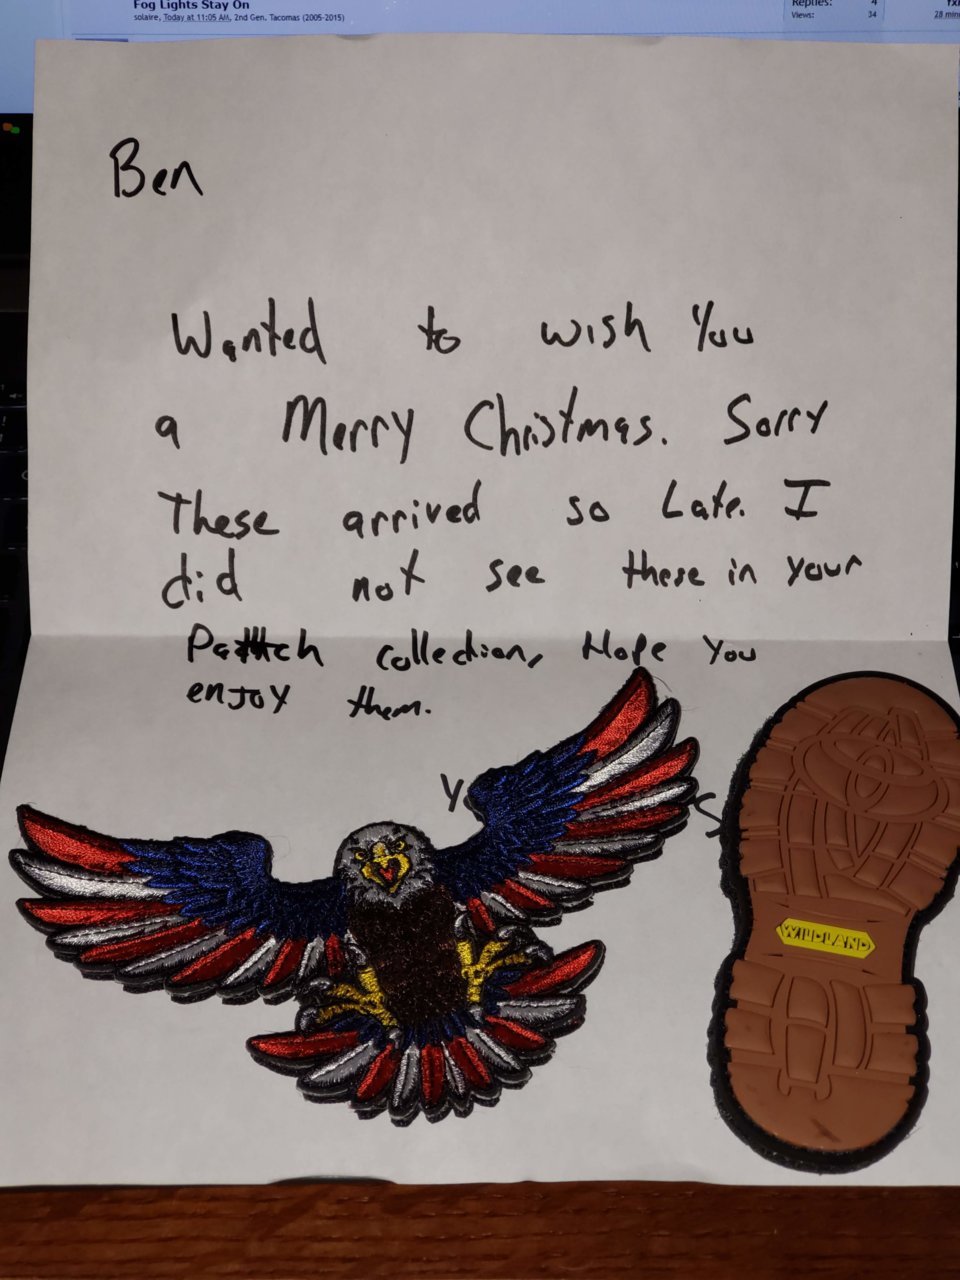 Fog Lights Stay On
solaire, Today at 11:05 AM, 2nd Gen. Tacomas (2005-2015)
Replies: 4
Views: 34
28 min
Ben
Wanted to wish You
a Merry Christmas. Sorry
These arrived so Late. I
did not see these in your
Patch collection, Hope You
enjoy them.
WILDLAND